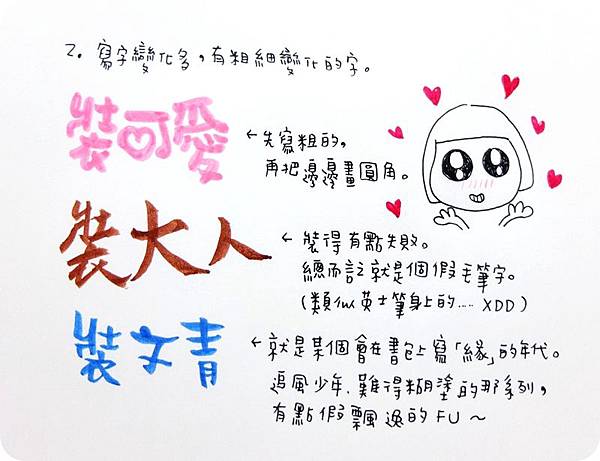 2. 寫字變化多，有粗細變化的字。
裝可愛
←先寫粗的，
再把邊邊畫圓角。
裝大人
←裝得有點失敗。
總而言之就是個假毛筆字。
(類似英士筆身上的..... XDD)
裝文青
←就是某個會在書包上寫「緣」的年代。
追風少年、難得糊塗的那系列，
有點假飄逸的FU～